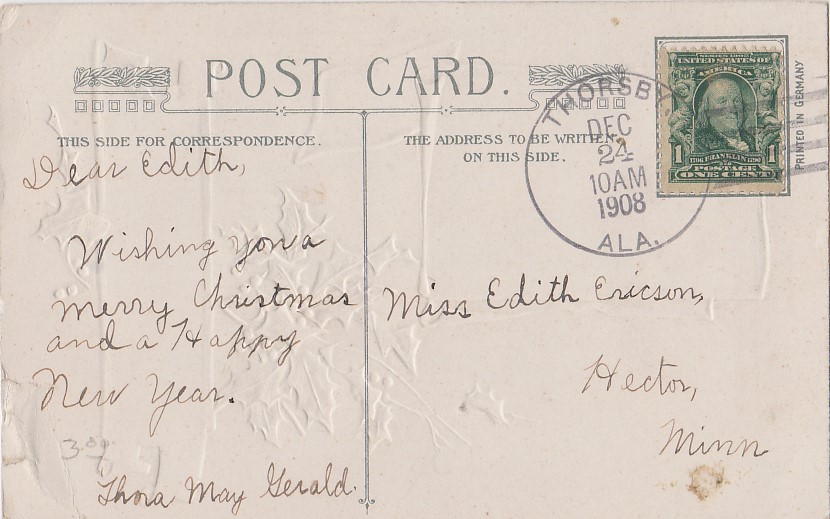 POST CARD.
THIS SIDE FOR CORRESPONDENCE.
THE ADDRESS TO BE WRITTEN
ON THIS SIDE.
THORSBY,
DEC
24
10AM
1908
ALA.
SERIES 1902
UNITED STATES OF
AMERICA
1 1
1706 FRANKLIN 1790
POSTAGE
ONE CENT
PRINTED IN GERMANY
Dear Edith,
Wishing you a
merry Christmas
and a Happy
New Year.
Thora May Gerald.
Miss Edith Ericson,
Hector,
Minn